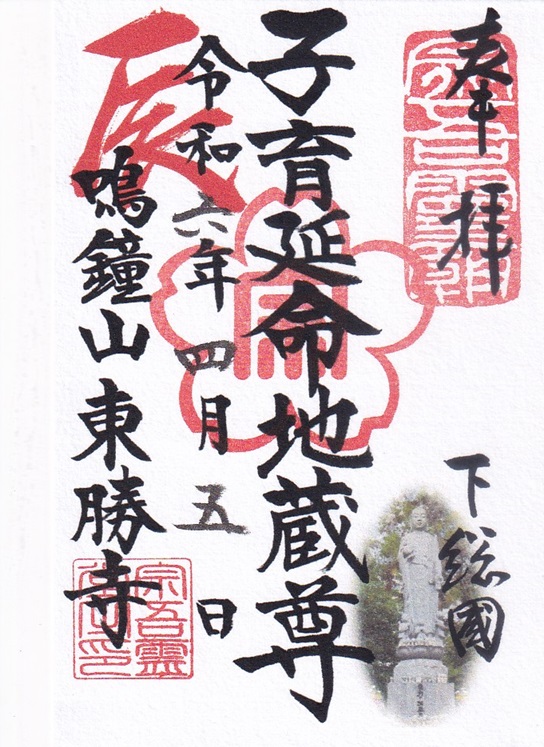 奉拝
下総國
子育延命地蔵尊
令和六年四月五日
辰
鳴鐘山東勝寺
宗吾霊